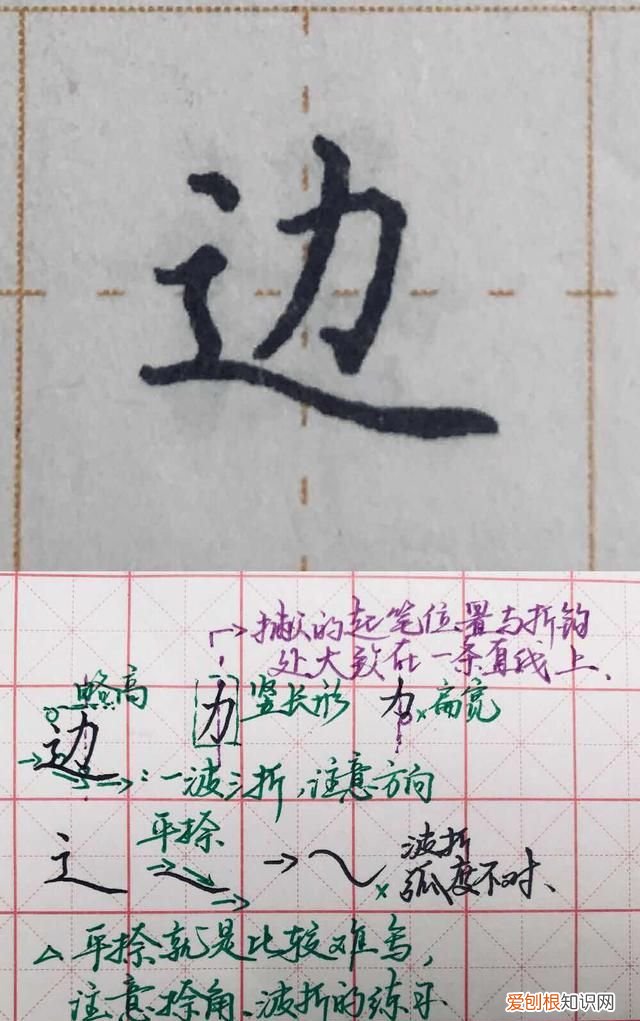 边
撇的起笔位置与折钩
处大致在一条直线上、
略高
边
力 竖长形 力 × 扁宽
:一波三折,注意方向
平捺
辶 → × 波折
弧度不对、
△ 平捺就是比较难写,
注意捺角、波折的练习
爱刨根知识网